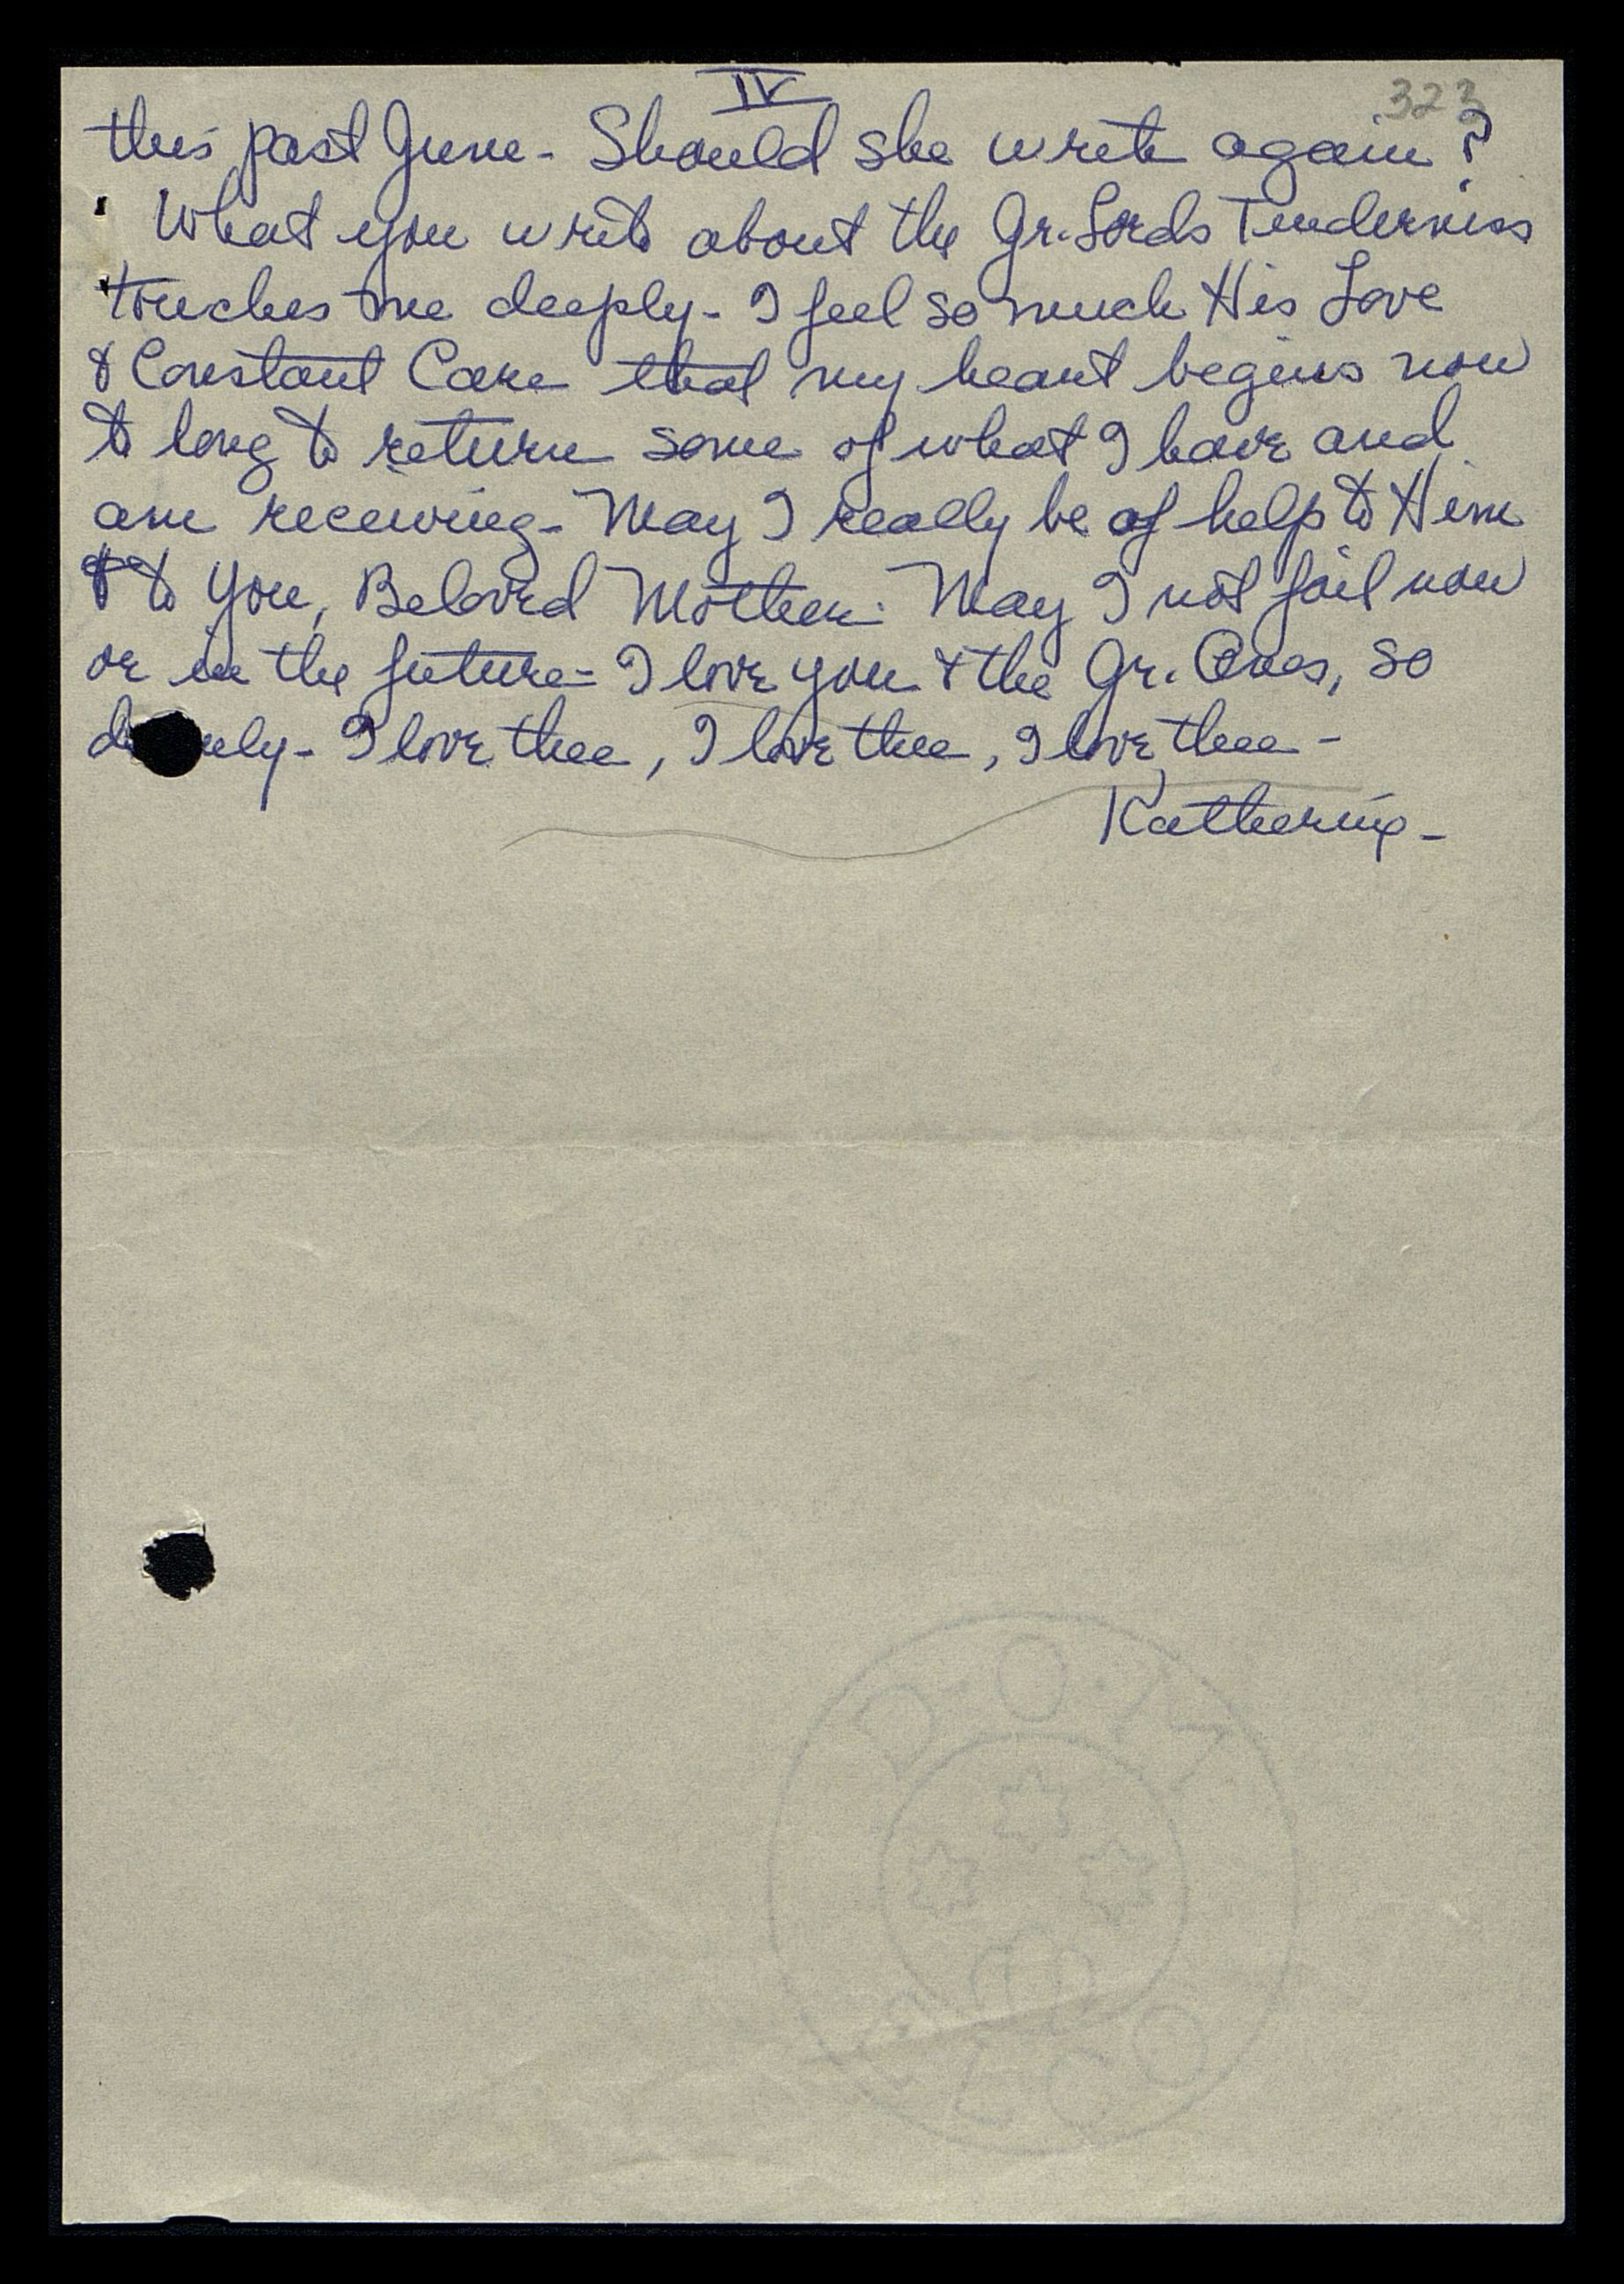 IV
323
this past June - Should she write again?
What you write about the Gr. Lords Tenderness
touches me deeply - I feel so much His Love
& Constant Care that my heart begins now
to long to return some of what I have and
am receiving - May I really be of help to Him
& to you, Beloved Mother. May I not fail now
or in the future - I love you & the Gr. Ones, so
I love thee, I love thee, I love thee -
Katherine -